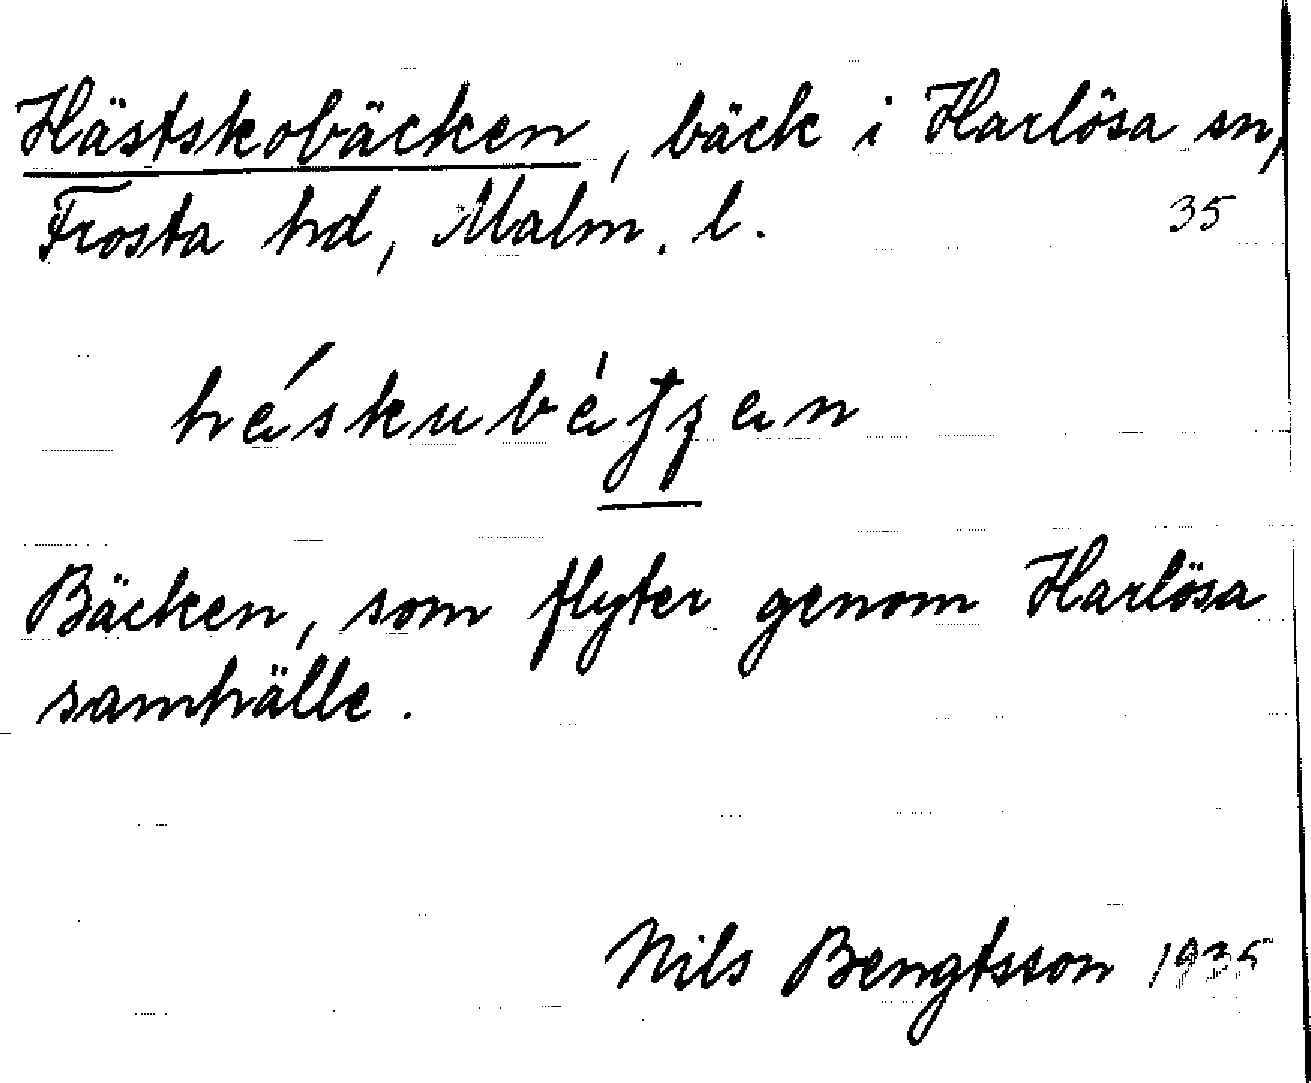 Hästskobäcken, bäck i Harlösa sn,
Frosta hd, Malm. l. 35
Bäcken, som flyter genom Harlösa
samhälle.
Nils Bengtsson 1935